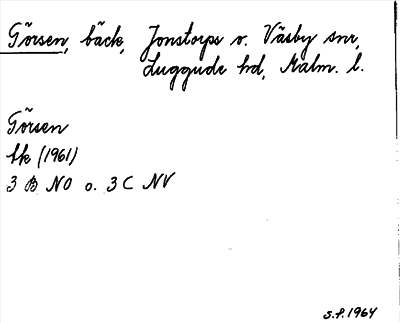 Görsen, bäck, Jonstorps o. Väsby snr,
Luggude hd, Malm. l.
Görsen
Ek (1961)
3 B NO o. 3 C NV
S.f. 1964